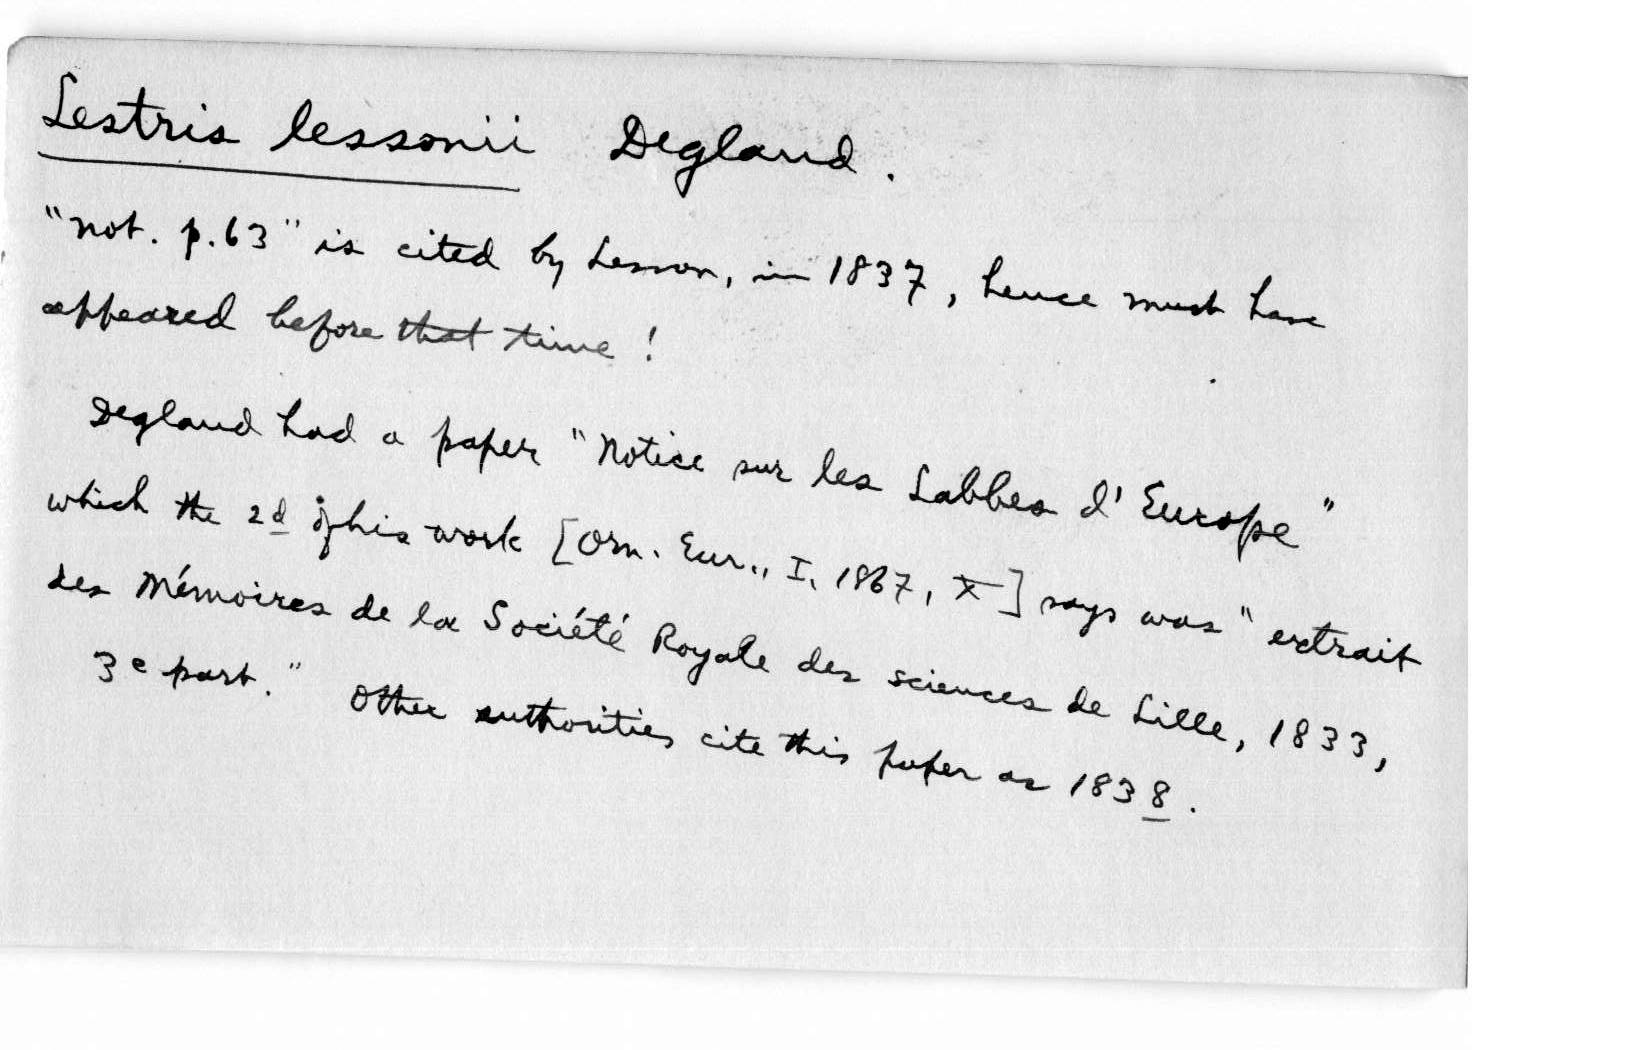 Lestris lessonii Degland.
"Not. p. 63" is cited by Lesson, in 1837, hence must have
appeared before that time!
Degland had a paper "Notice sur les Labbes d'Europe"
which the 2d of his work [Orn. Eur., I, 1867, X] says was "extrait
des Mémoires de la Société Royale des sciences de Lille, 1833,
3e part." Other authorities cite this paper as 1838.